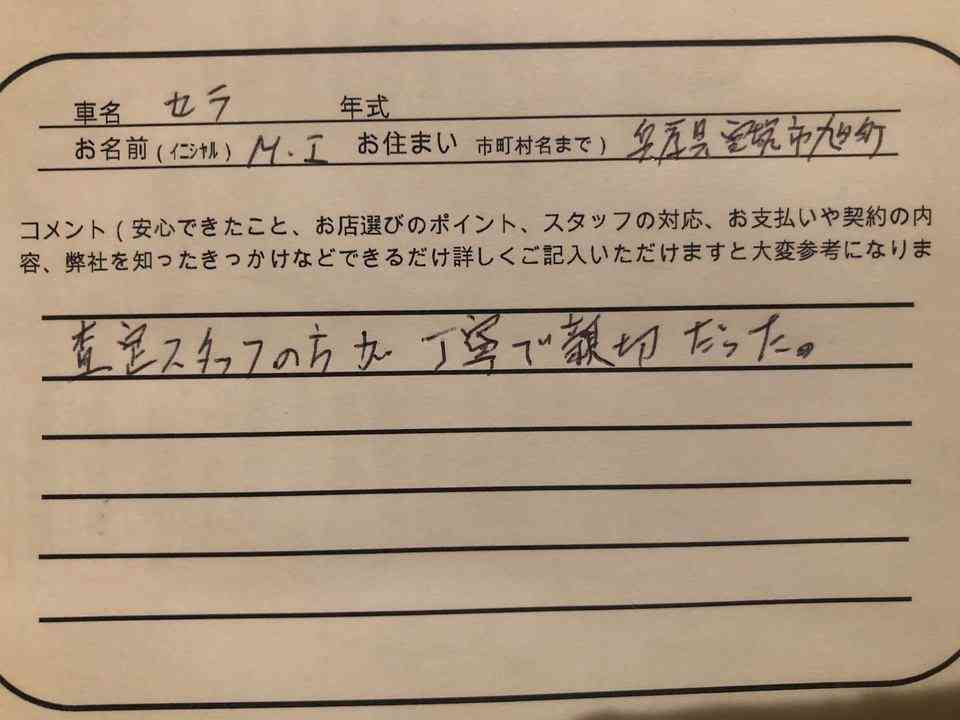 車名 セラ 年式
お名前(イニシャル) M.I お住まい 市町村名まで) 兵庫県宝塚市旭町
コメント(安心できたこと、お店選びのポイント、スタッフの対応、お支払いや契約の内
容、弊社を知ったきっかけなどできるだけ詳しくご記入いただけますと大変参考になりま
査定スタッフの方が丁寧で親切だった。